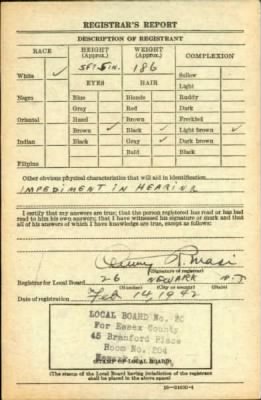 REGISTRAR'S REPORT
DESCRIPTION OF REGISTRANT
RACE HEIGHT (Approx.) WEIGHT (Approx.) COMPLEXION
White ✓ 5FT 5IN. 186 Sallow
EYES HAIR Light
Negro Blue Blonde Ruddy
Gray Red Dark
Oriental Hazel Brown Freckled
Brown ✓ Black ✓ Light brown ✓
Indian Black Gray ✓ Dark brown
Bald Black
Filipino
Other obvious physical characteristics that will aid in identification
IMPEDIMENT IN HEARING
I certify that my answers are true; that the person registered has read or has had read to him his own answers; that I have witnessed his signature or mark and that all of his answers of which I have knowledge are true, except as follows:
(Signature of registrar)
Registrar for Local Board 26 NEWARK N.J.
(Number) (City or county) (State)
Date of registration Feb 14, 1942
LOCAL BOARD No. 26
For Essex County
45 Branford Place
Room No. 204
Newark
(STAMP OF LOCAL BOARD)
(The stamp of the Local Board having jurisdiction of the registrant shall be placed in the above space.)